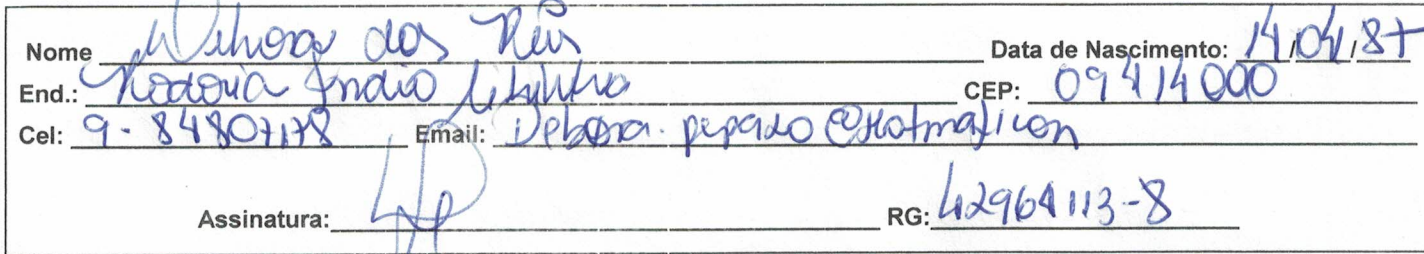 Nome Debora dos Reis Data de Nascimento: 14/04/87
End.: Rodovia Índio Tibiriça CEP: 09414000
Cel: 9-84807178 Email: Debora. @hotmail.com
Assinatura: RG: 42964113-8